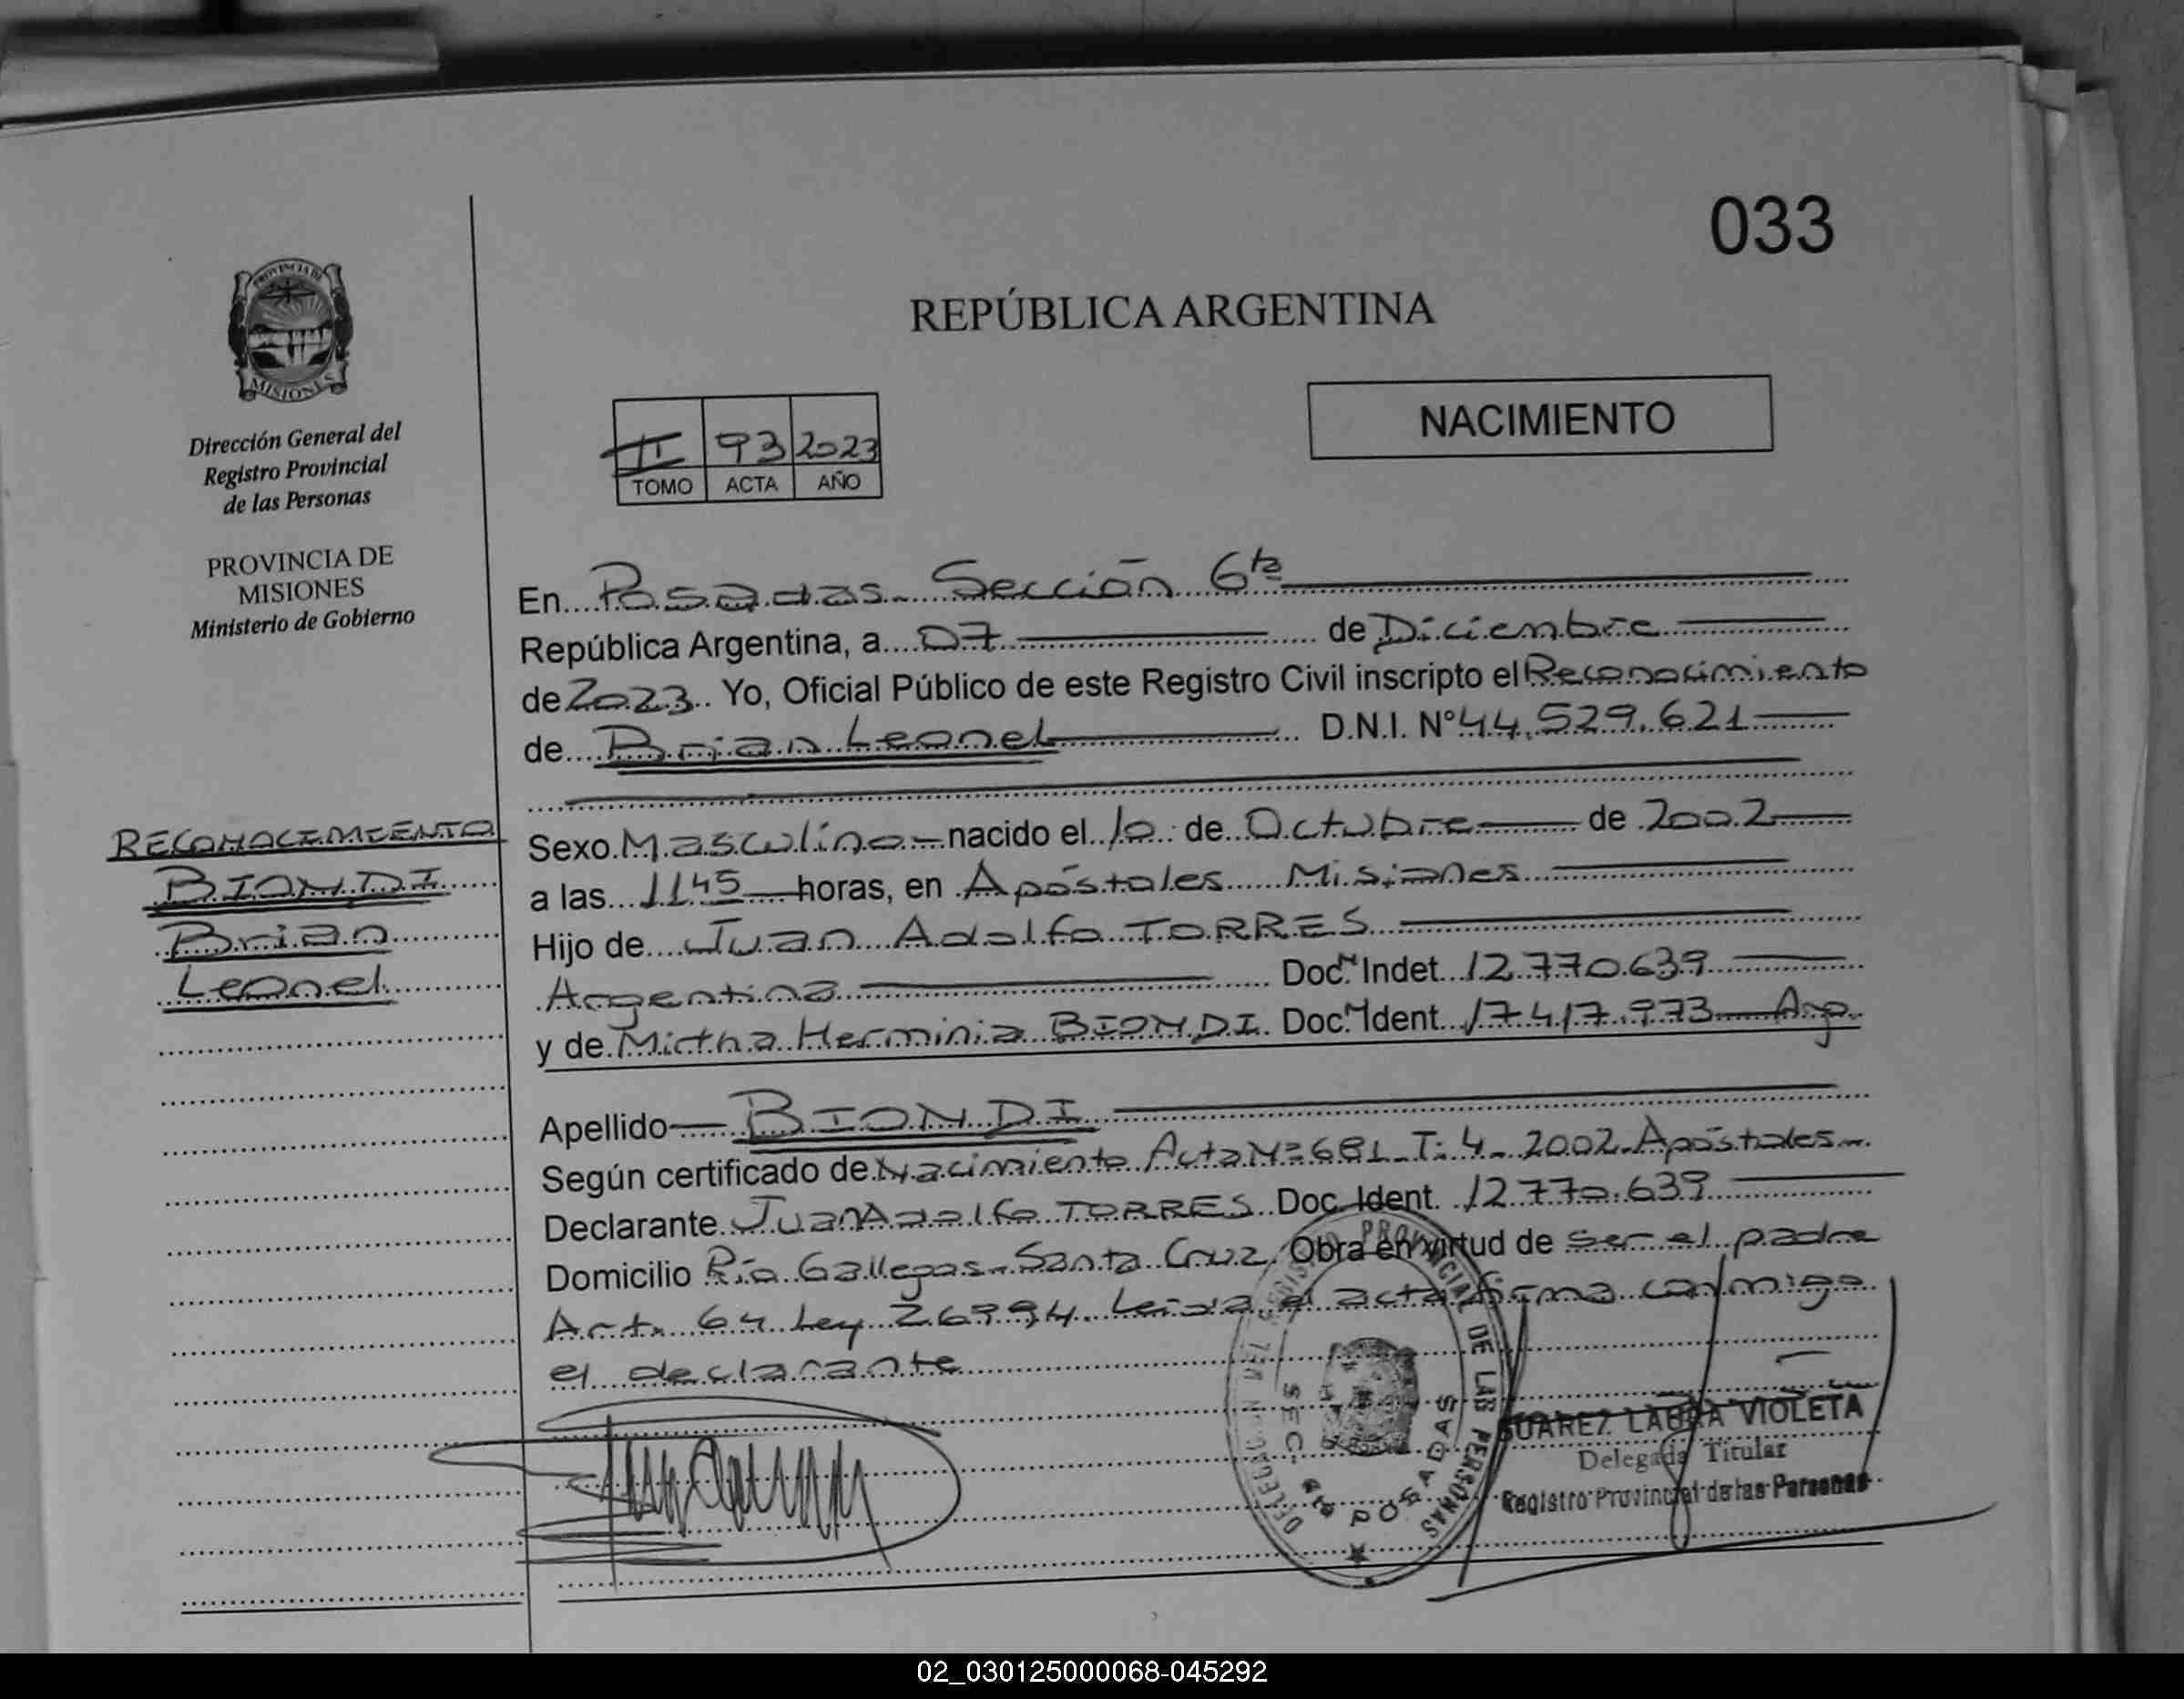 033
REPÚBLICA ARGENTINA
NACIMIENTO
PROVINCIA DE
MISIONES
Dirección General del
Registro Provincial
de las Personas
PROVINCIA DE
MISIONES
Ministerio de Gobierno
II 93 2023
TOMO ACTA AÑO
En Posadas - Sección 6ta
República Argentina, a 07 de Diciembre
de 2023 Yo, Oficial Público de este Registro Civil inscripto el Reconocimiento
de Brian Leonel D.N.I. N° 44.529.621
RECONOCIMIENTO
BIONDI
Brian
Leonel
Sexo Masculino nacido el 10 de Octubre de 2002
a las 1145 horas, en Apóstoles Misiones
Hijo de Juan Adolfo TORRES
Argentina Doc. Indet. 12.770.639
y de Mirtha Herminia BIONDI Doc. Ident. 17.417.973 Arg.
Apellido BIONDI
Según certificado de Nacimiento Acta Nº 681 - T: 4 - 2002 - Apóstoles
Declarante Juan Adolfo TORRES Doc. Ident. 12.770.639
Domicilio Río Gallegos - Santa Cruz Obra en virtud de ser el padre
Art. 64 Ley 26994. Leida el acta firma conmigo
el declarante
REGISTRO PROVINCIAL DE LAS PERSONAS
SEC. 6ta POSADAS
SUAREZ LAURA VIOLETA
Delegada Titular
Registro Provincial de las Personas
02_030125000068-045292